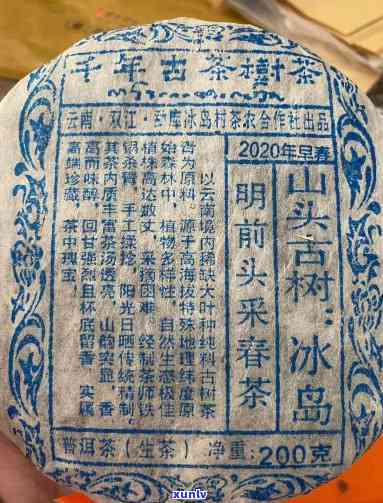 千年古茶樹茶
云南·双江·勐库冰岛村茶农合作社出品
2020年早春
山头古树:冰岛
明前头采春茶
以云南境内稀缺大叶种纯料古树茶
青为原料。源于高海拔特殊地理纬度原
始森林中，植物多样性，自然生态极佳
植株高达数丈，采摘困难，经制茶师铁
锅杀青，手工揉捻，阳光日晒传统精制，
其茶内质丰富茶汤透亮，山韵实显，香
高而味醇，回甘强烈且杯底留香，实属
高端珍藏，茶中瑰宝。
普洱茶(生茶) 净重:200克
xunlv